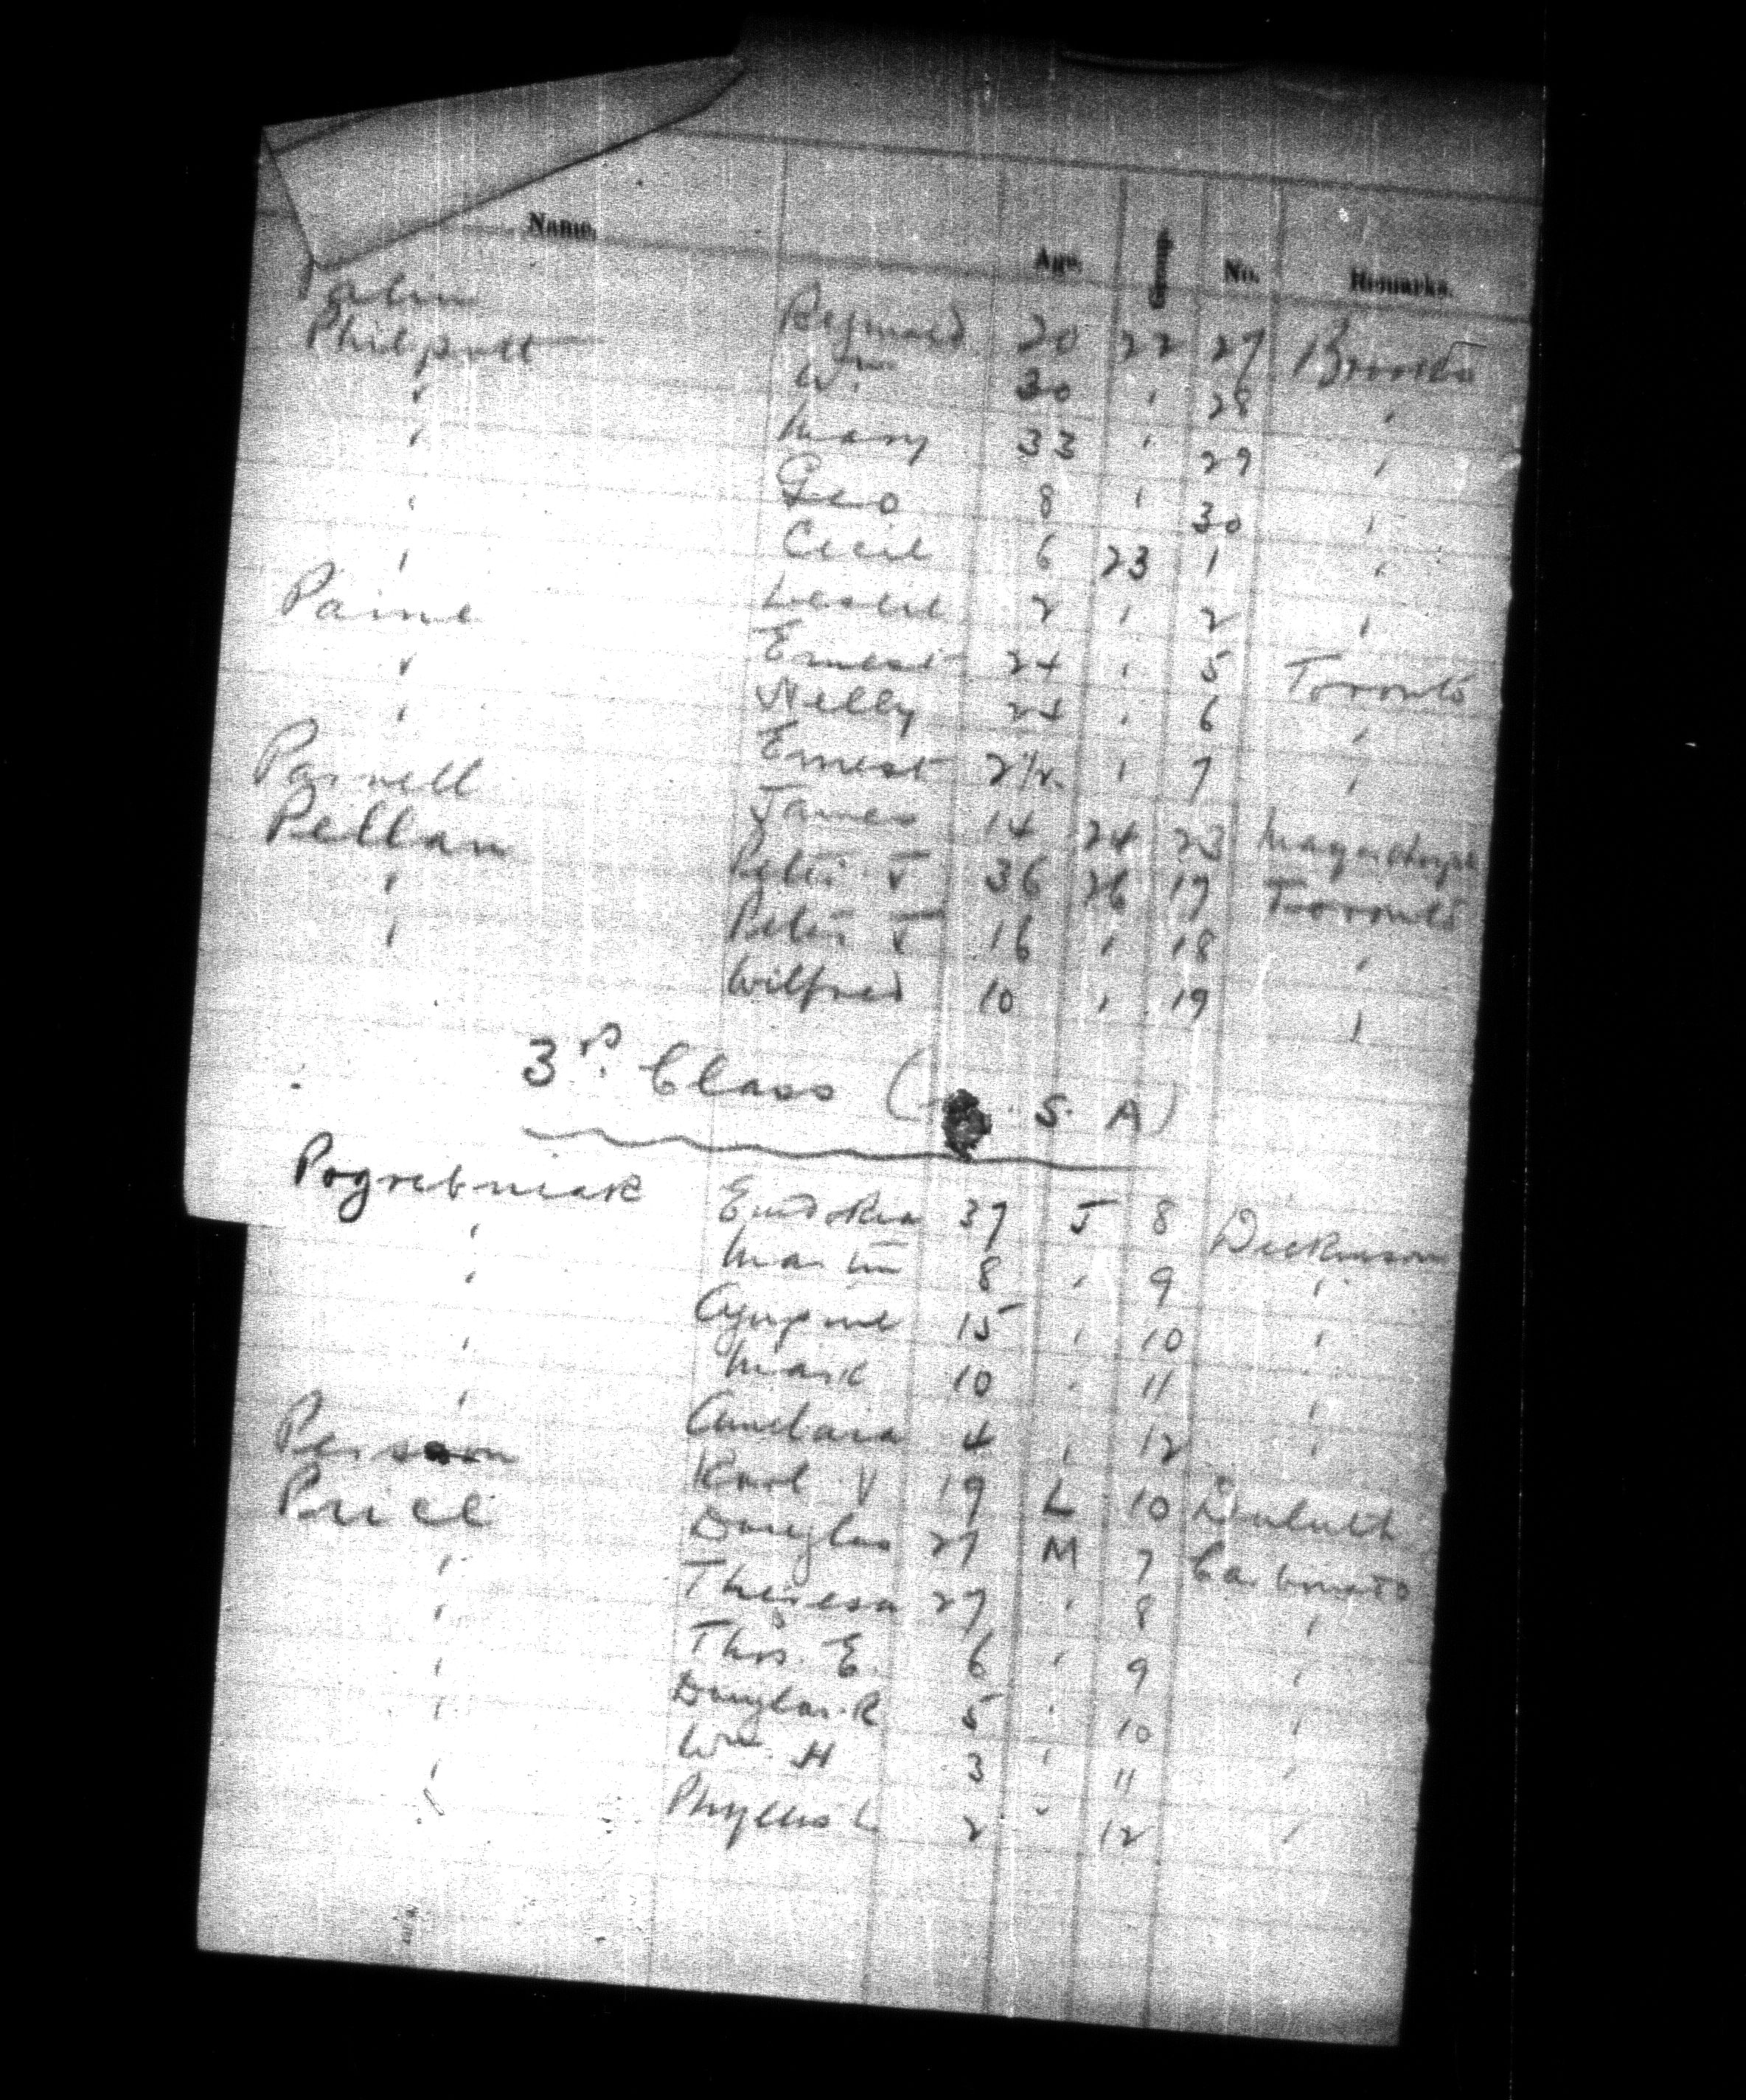 Name. Age. Group No. Remarks.
Reginald 20 22 27
Philpott Wm 30 ' 28 '
" Mary 33 ' 29 '
" Geo 8 ' 30 '
" Cecil 6 23 1 '
" Leslie 2 ' 2 '
Paine Ernest 24 ' 5 Toronto
" Nelly 24 ' 6 '
" Ernest 2 1/2. ' 7 '
Parnell James 14 24 23
Pellam Peter J 36 26 17 Toronto
" Peter J 16 ' 18 '
" Wilfred 10 ' 19 '
3rd Class ( S. A)
Pogrebniak 37 J 8 Dickinson
" Martin 8 ' 9 '
" 15 ' 10 '
" 10 ' 11 '
" 4 ' 12 '
Person Karl V 19 L 10 Duluth
Price Douglas 27 M 7
" Theresa 27 ' 8 '
" Thos. E. 6 ' 9 '
" Douglas. R 5 ' 10 '
" Wm. H 3 ' 11 '
" Phyllis L 2 " 12 '